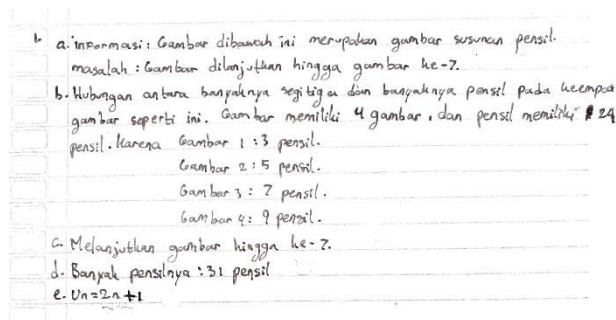 1. a. informasi : Gambar dibawah ini merupakan gambar susunan pensil.
masalah : Gambar dilanjutkan hingga gambar ke-7.
b. Hubungan antara banyaknya segitiga dan banyaknya pensil pada keempat
gambar seperti ini. Gambar memiliki 4 gambar, dan pensil memiliki 24
pensil. Karena Gambar 1 : 3 pensil.
Gambar 2 : 5 pensil.
Gambar 3 : 7 pensil.
Gambar 4 : 9 pensil.
c. Melanjutkan gambar hingga ke-7.
d. Banyak pensilnya : 31 pensil
e. Un = 2n + 1